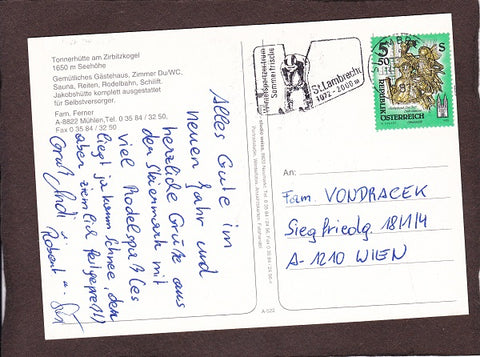 Tonnerhütte am Zirbitzkogel
1650 m Seehöhe
Gemütliches Gästehaus, Zimmer Du/WC,
Sauna, Reiten, Rodelbahn, Schilift.
Jakobshütte komplett ausgestattet
für Selbstversorger.
Fam. Ferner
A-8822 Mühlen, Tel. 0 35 84 / 32 50,
Fax 0 35 84 / 32 50
Alles Gute im
neuen Jahr und
herzliche Grüße aus
der Steiermark mit
viel Rodelspaß (es
liegt ja kaum Schnee, den
aber ziemlich
Gruß Andi, Robert u.
A-522
Wintersportzentrum
Sommerfrische
St. Lambrecht
1072-2000 m
5
50
S
REPUBLIK
ÖSTERREICH
An:
Fam. VONDRACEK
Siegfriedg. 18/1/4
A-1210 WIEN